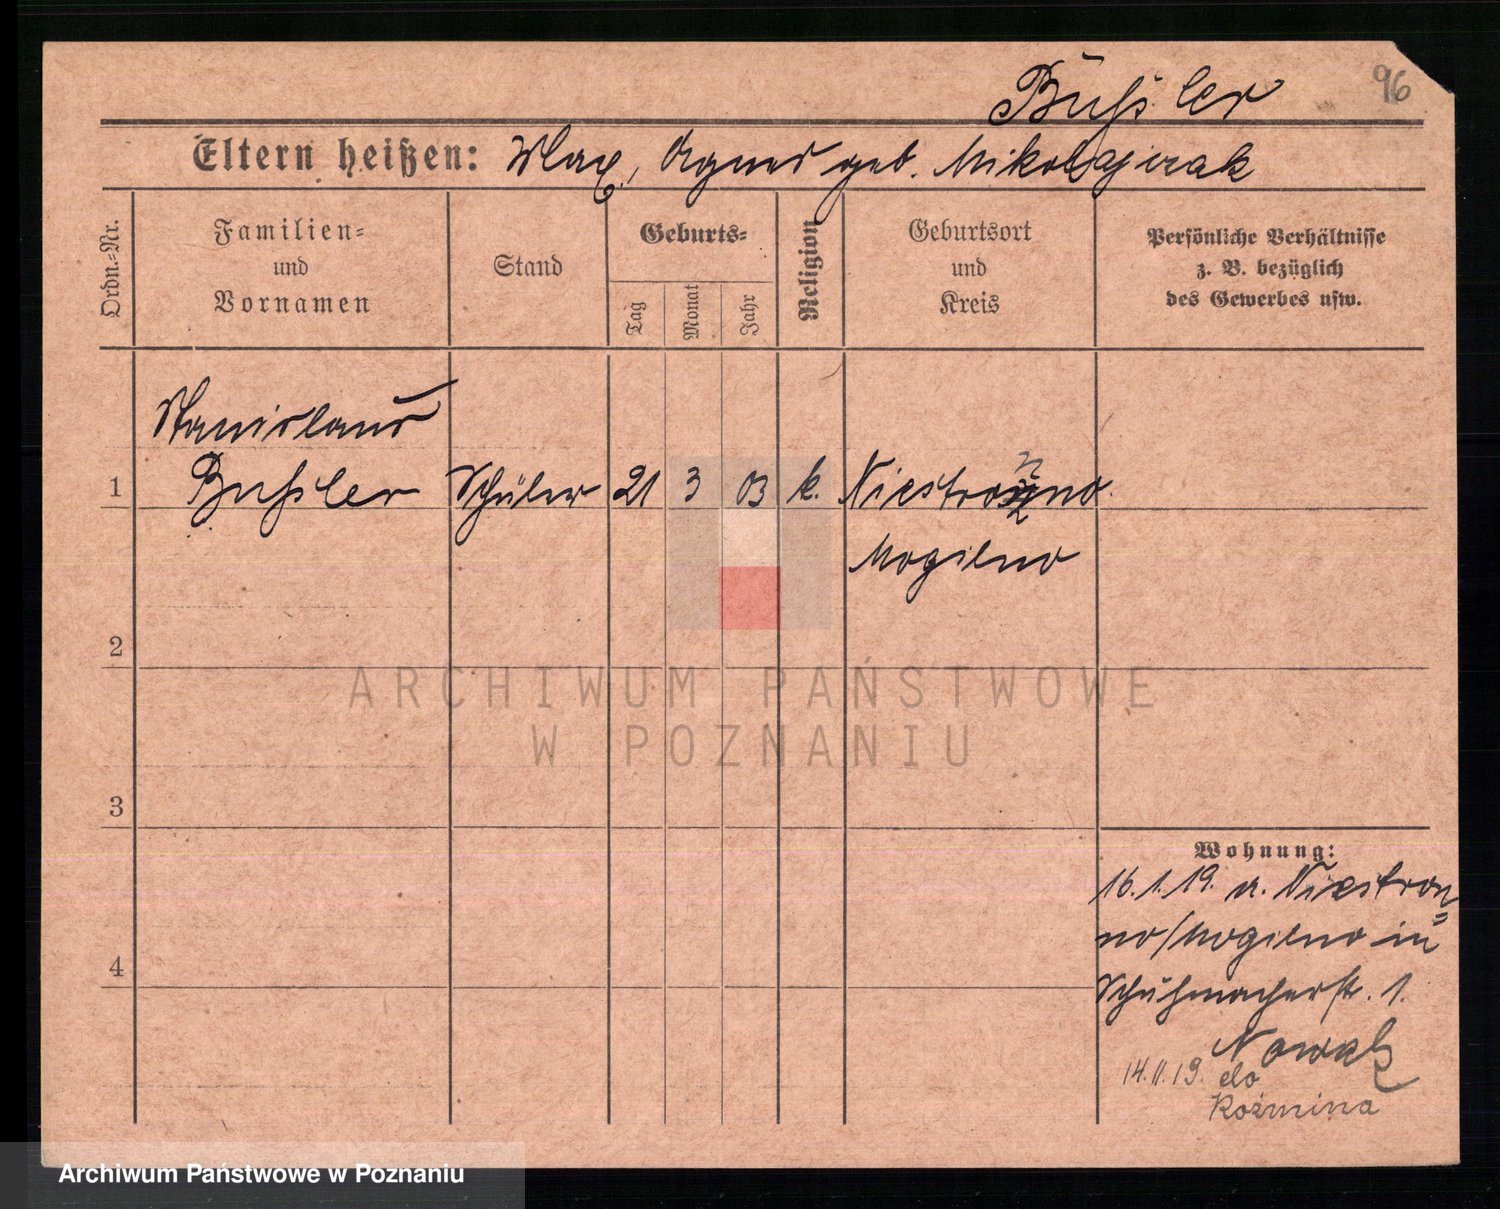 96
Bußler
Eltern heißen: Max, Agnes geb. Mikołajczak
Ordn.-Nr.
Familien-
und
Vornamen
Stand
Geburts-
Tag
Monat
Jahr
Religion
Geburtsort
und
Kreis
Persönliche Verhältnisse
z. B. bezüglich
des Gewerbes usw.
Stanislaus
1 Bußler Schüler 21 3 03 k. Niestronno
Mogilno
2
ARCHIWUM PAŃSTWOWE
W POZNANIU
3
Wohnung:
16.1.19. a. Niestron=
no/Mogilno in
4
Schuhmacherstr. 1.
Nowak
14.11.19. do
Koźmina
Archiwum Państwowe w Poznaniu